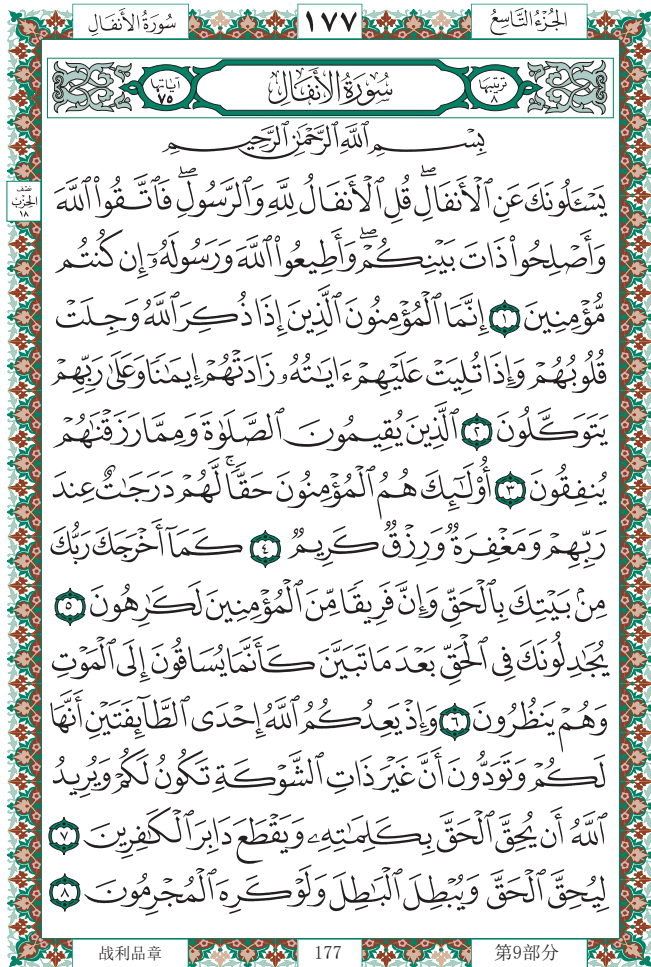 الجُزْءُ التَّاسِعُ ١٧٧ سُورَةُ الأَنفَالِ
تَرْتِيبُهَا ٨ سُورَةُ الأَنفَالِ آيَاتُهَا ٧٥
بِسْمِ ٱللَّهِ ٱلرَّحْمَٰنِ ٱلرَّحِيمِ
يَسْـَٔلُونَكَ عَنِ ٱلْأَنفَالِۖ قُلِ ٱلْأَنفَالُ لِلَّهِ وَٱلرَّسُولِۖ فَٱتَّقُوا۟ ٱللَّهَ
نصف الحزب ١٨
وَأَصْلِحُوا۟ ذَاتَ بَيْنِكُمْۖ وَأَطِيعُوا۟ ٱللَّهَ وَرَسُولَهُۥٓ إِن كُنتُم
مُّؤْمِنِينَ ١ إِنَّمَا ٱلْمُؤْمِنُونَ ٱلَّذِينَ إِذَا ذُكِرَ ٱللَّهُ وَجِلَتْ
قُلُوبُهُمْ وَإِذَا تُلِيَتْ عَلَيْهِمْ ءَايَٰتُهُۥ زَادَتْهُمْ إِيمَٰنًا وَعَلَىٰ رَبِّهِمْ
يَتَوَكَّلُونَ ٢ ٱلَّذِينَ يُقِيمُونَ ٱلصَّلَوٰةَ وَمِمَّا رَزَقْنَٰهُمْ
يُنفِقُونَ ٣ أُو۟لَٰٓئِكَ هُمُ ٱلْمُؤْمِنُونَ حَقًّاۚ لَّهُمْ دَرَجَٰتٌ عِندَ
رَبِّهِمْ وَمَغْفِرَةٌ وَرِزْقٌ كَرِيمٌ ٤ كَمَآ أَخْرَجَكَ رَبُّكَ
مِنۢ بَيْتِكَ بِٱلْحَقِّ وَإِنَّ فَرِيقًا مِّنَ ٱلْمُؤْمِنِينَ لَكَٰرِهُونَ ٥
يُجَٰدِلُونَكَ فِى ٱلْحَقِّ بَعْدَ مَا تَبَيَّنَ كَأَنَّمَا يُسَاقُونَ إِلَى ٱلْمَوْتِ
وَهُمْ يَنظُرُونَ ٦ وَإِذْ يَعِدُكُمُ ٱللَّهُ إِحْدَى ٱلطَّآئِفَتَيْنِ أَنَّهَا
لَكُمْ وَتَوَدُّونَ أَنَّ غَيْرَ ذَاتِ ٱلشَّوْكَةِ تَكُونُ لَكُمْ وَيُرِيدُ
ٱللَّهُ أَن يُحِقَّ ٱلْحَقَّ بِكَلِمَٰتِهِۦ وَيَقْطَعَ دَابِرَ ٱلْكَٰفِرِينَ ٧
لِيُحِقَّ ٱلْحَقَّ وَيُبْطِلَ ٱلْبَٰطِلَ وَلَوْ كَرِهَ ٱلْمُجْرِمُونَ ٨
战利品章 177 第9部分